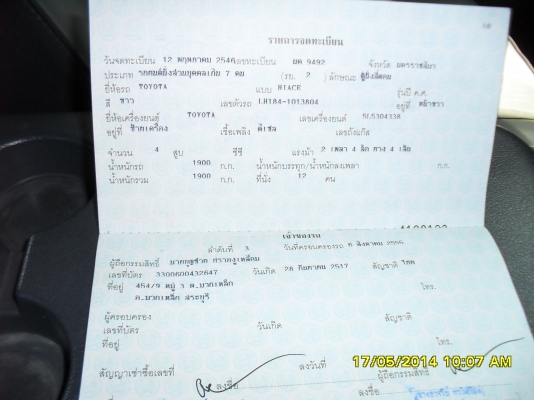 รายการจดทะเบียน
วันจดทะเบียน 12 พฤษภาคม 2546 เลขทะเบียน นค 9492 จังหวัด นครราชสีมา
ประเภท รถยนต์นั่งส่วนบุคคลเกิน 7 คน (รย. 2 ) ลักษณะ ตู้นั่งสี่ตอน
ยี่ห้อรถ TOYOTA แบบ HIACE รุ่นปี ค.ศ.
สี ขาว เลขตัวรถ LH184-1013804 อยู่ที่ หน้าขวา
ยี่ห้อเครื่องยนต์ TOYOTA เลขเครื่องยนต์ 5L5304338
อยู่ที่ ซ้ายเครื่อง เชื้อเพลิง ดีเซล เลขถังแก๊ส
จำนวน 4 สูบ ซีซี แรงม้า 2 เพลา 4 ล้อ ยาง 4 เส้น
น้ำหนักรถ 1900 ก.ก. น้ำหนักบรรทุก/น้ำหนักลงเพลา ก.ก.
น้ำหนักรวม 1900 ก.ก. ที่นั่ง 12 คน
เจ้าของรถ
ลำดับที่ 3 วันที่ครอบครองรถ 6 สิงหาคม
ผู้ถือกรรมสิทธิ์
เลขที่บัตร 3300600432647 วันเกิด 26 กันยายน 2517 สัญชาติ ไทย
ที่อยู่ 454/9 หมู่ ต.มวกเหล็ก โทร.
อ.มวกเหล็ก สระบุรี
ผู้ครอบครอง
เลขที่บัตร วันเกิด สัญชาติ
ที่อยู่ โทร.
สัญญาเช่าซื้อเลขที่ ลงวันที่ ผู้ถือกรรมสิทธิ์
ลงชื่อ ลงชื่อ
17/05/2014 10:07 AM